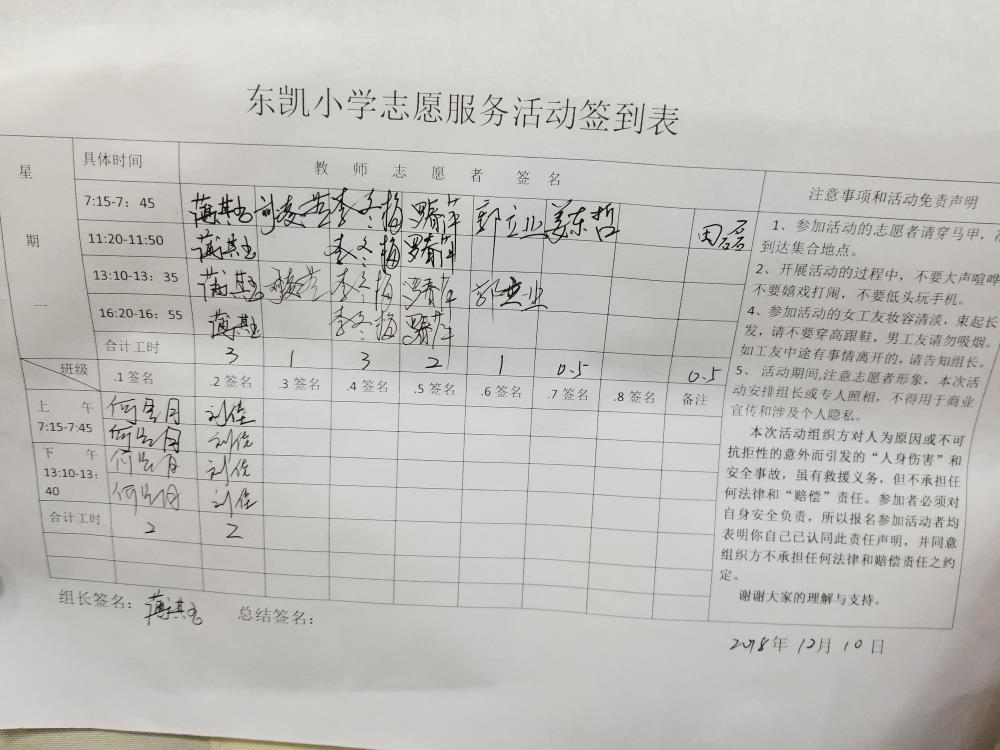 东凯小学志愿服务活动签到表
星期一
具体时间 教师志愿者签名 注意事项和活动免责声明
7:15-7:45 薄其玉 李冬梅 罗春萍 郭立业 姜东哲 田磊
11:20-11:50 薄其玉 李冬梅 罗春萍
13:10-13:35 薄其玉 李冬梅 罗春萍 郭立业
16:20-16:55 薄其玉 李冬梅 罗春萍
合计工时 3 1 3 2 1 0.5 0.5
班级 .1签名 .2签名 .3签名 .4签名 .5签名 .6签名 .7签名 .8签名 备注
上午
7:15-7:45 刘佳
刘佳
下午
13:10-13:
40
刘佳
刘佳
合计工时 2 2
1、参加活动的志愿者请穿马甲，
到达集合地点。
2、开展活动的过程中，不要大声喧哗
不要嬉戏打闹，不要低头玩手机。
4、参加活动的女工友妆容清淡，束起长
发，请不要穿高跟鞋，男工友请勿吸烟。
如工友中途有事情离开的，请告知组长。
5、活动期间,注意志愿者形象，本次活
动安排组长或专人照相，不得用于商业
宣传和涉及个人隐私。
本次活动组织方对人为原因或不可
抗拒性的意外而引发的“人身伤害”和
安全事故，虽有救援义务，但不承担任
何法律和“赔偿”责任。参加者必须对
自身安全负责，所以报名参加活动者均
表明你自己已认同此责任声明，并同意
组织方不承担任何法律和赔偿责任之约
定。
谢谢大家的理解与支持。
组长签名：薄其玉 总结签名：
2018年12月10日